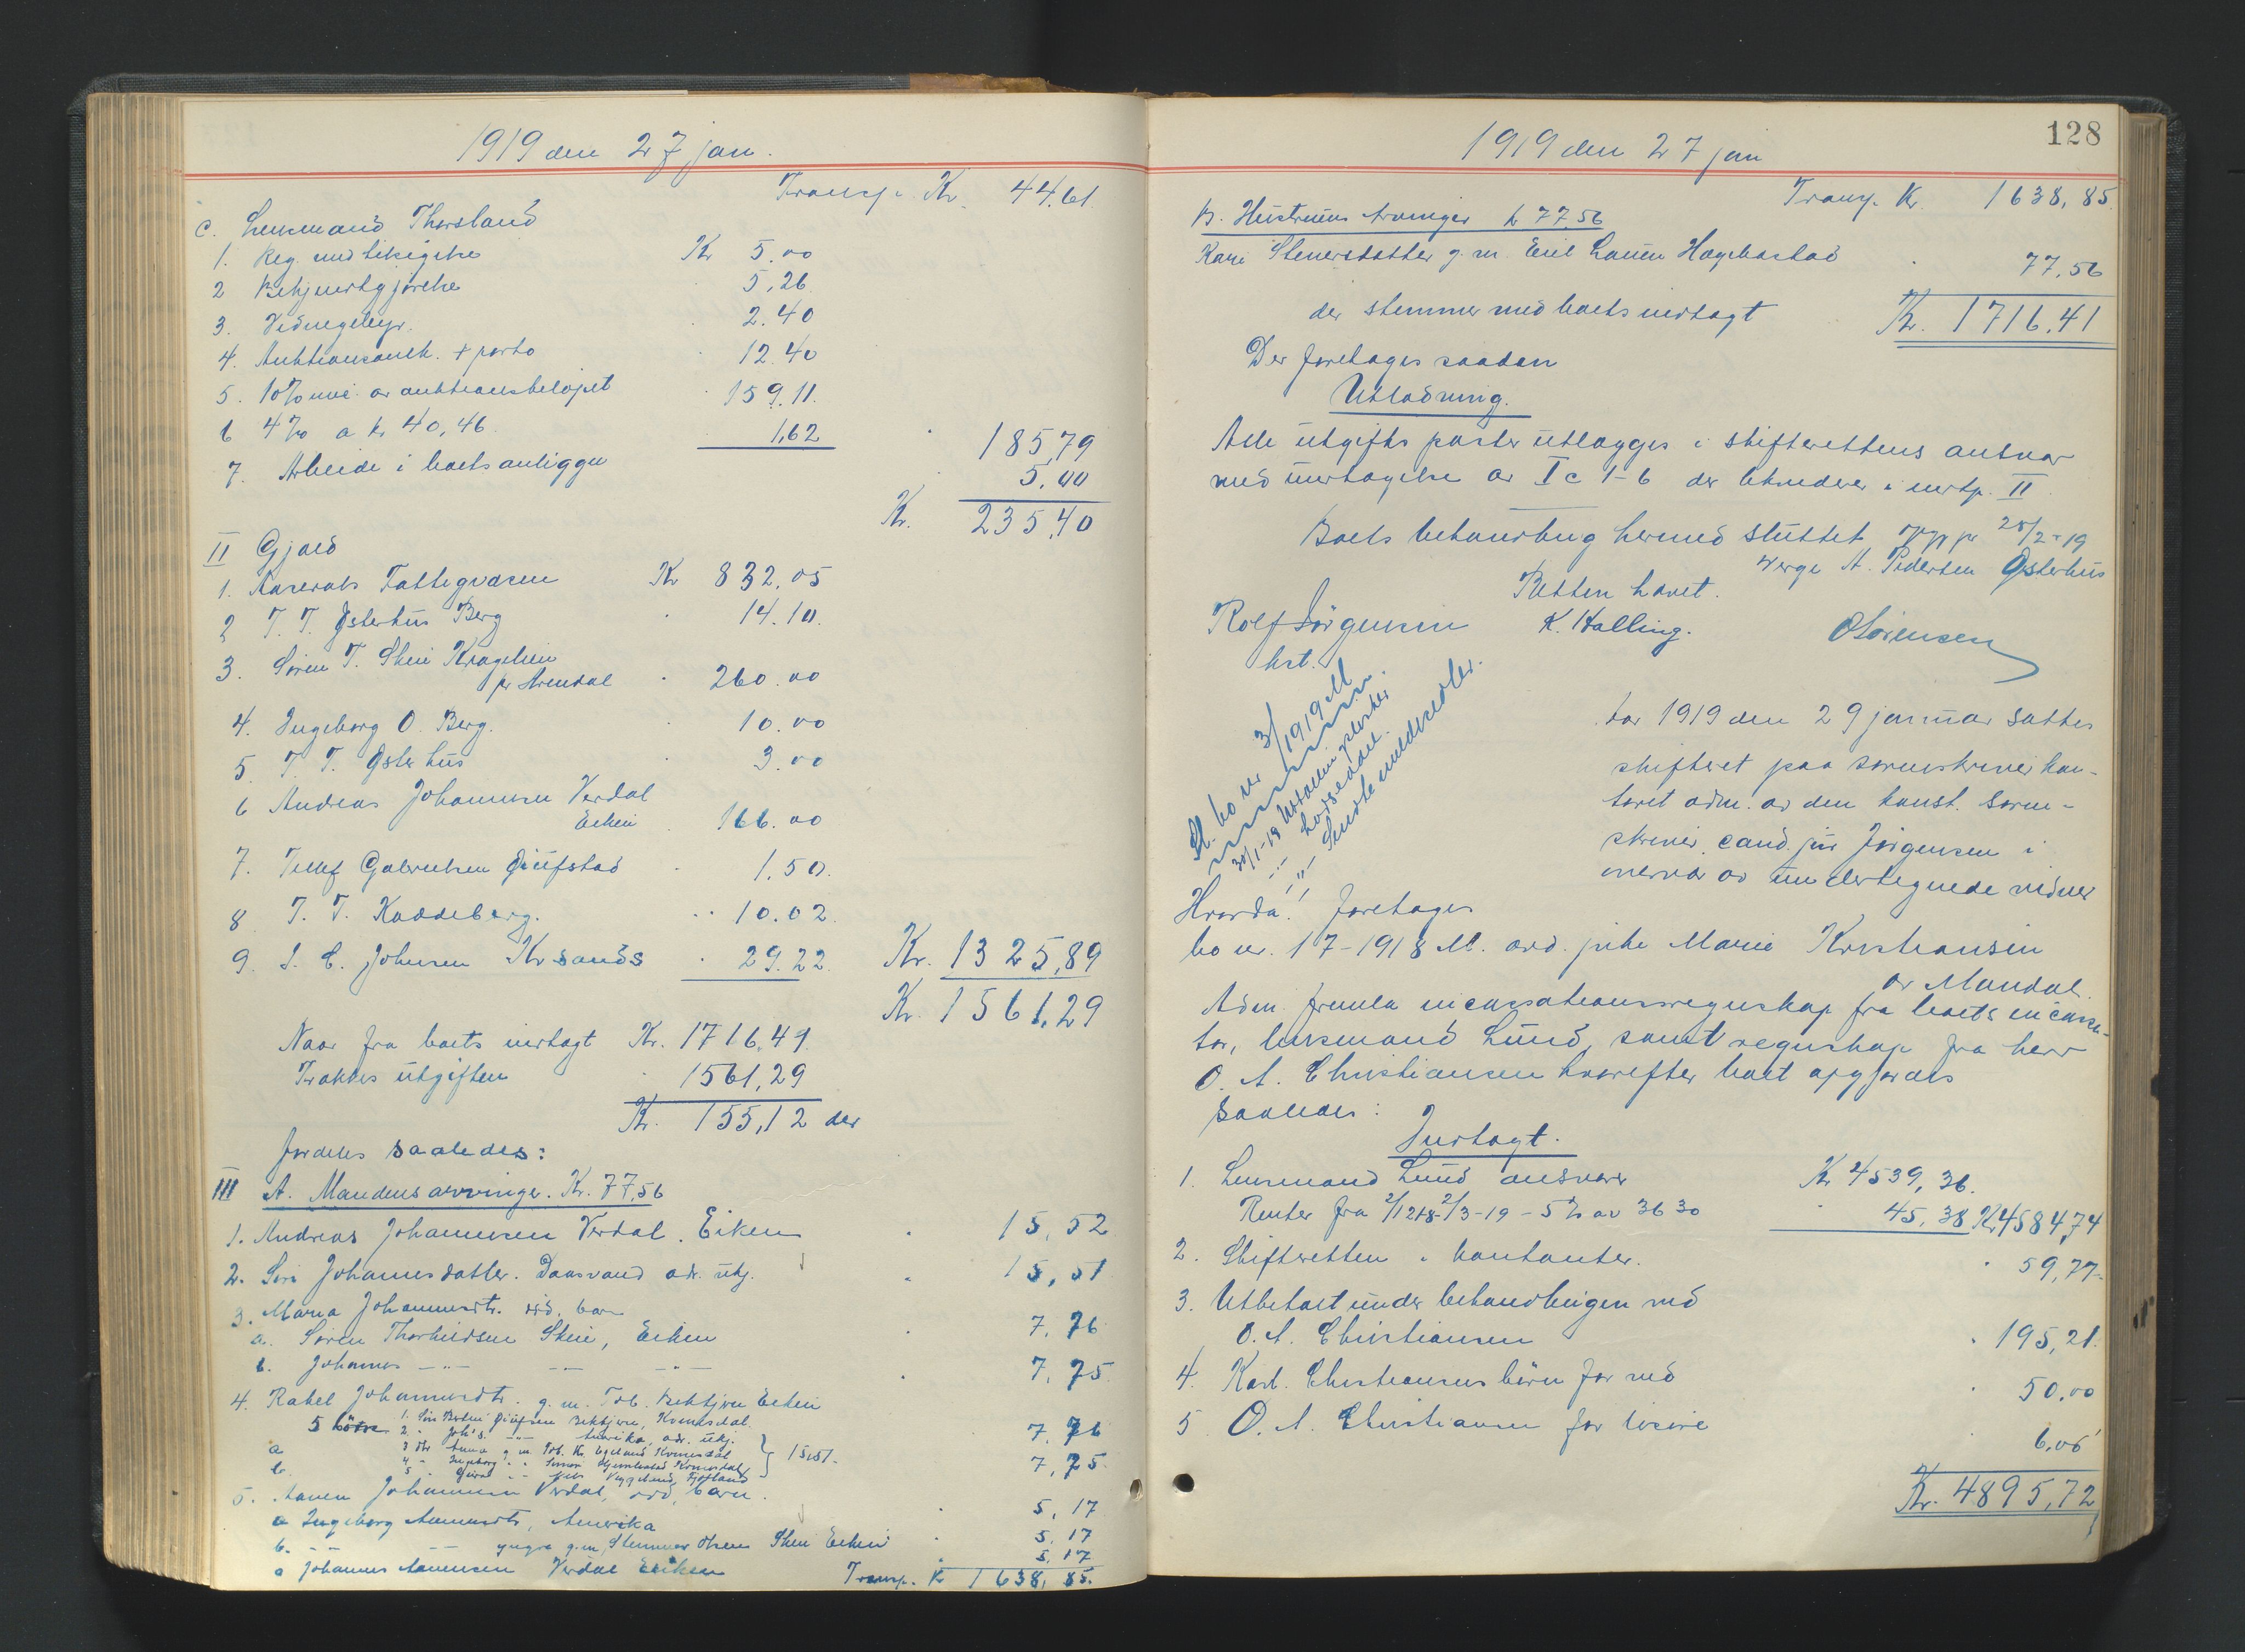 1919 den 27 jan.
Transp. Kr. 44.61
c. Lensmand Thorsland
1. Reg. med likigelse Kr 5.00
2 Bekjendtgjørelse 5,26
3. Vidnegebyr. 2.40
4. Auktionsbek. + porto 12.40
5. 10% av auktionsbeløpet 159.11.
6 4% a kr 40,46 1,62 185,79
7. Arbeide i boets anligger 5,00
Kr. 235,40
II Gjæld
1. Aaseral Fattigvæsen Kr 832,05
2 T. T. Østerhus Berg 14.10.
3. Søren T. Skeie
pr Arendal 260.00
4. Ingeborg O. Berg. 10.00
5 T. T. Østerhus 3.00
6 Andreas Johannesen Verdal
Eiken 166.00
7. Tellef Gabrielsen 1.50.
8 T. T. Kaddeberg. 10.02
9. J. C. Johnsen Krsands 29.22. Kr. 1325,89
Kr. 1561,29
Naar fra boets indtægt Kr. 1716.41
Trækkes utgiften 1561,29
Kr. 155,12 der
fordeles saaledes:
III A. Mandens arvinger. Kr. 77,56
1. Andreas Johannesen Verdal. Eiken 15,52
2. Siri Johannesdatter. Daasvand adr. ukj. 15,51
3. Maria Johannesdtr. død, barn
a. Søren Thorkildsen Skeie, Eiken 7,76
b. Johannes —"— —"— —"— 7,75
4. Rakel Johannesdtr. g. m. Tob. Birkeland Eiken
5 børn 1. Kvinesdal. 7,76
2. Joh's. —"— Amerika, adr. ukj.
a 3 dtr Anna g. m. Tob. Kr. Egeland Kvinesdal } 15,51.
b. 4 - Ingeborg - - Simon Kvinesdal 7,75
5 - - - Nils Veggeland, Fjotland
5. Aanen Johannesen Verdal, død, barn.
a Ingeborg Aanensdtr, Amerika 5,17
b. — — yngre g. m. Steinar Olsen Skeie Eiken 5,17
c Johannes Aanensen Verdal Eiken 5,17
Transp. Kr 1638,85.
1919 den 27 jan
128
Transp. Kr. 1638,85.
B. Hustruens Arvinger kr 77,56
Kari Stenersdatter g. m. Eril Lauen Hægebostad 77,56
der stemmer med boets indtægt Kr. 1716,41
Der foretages saadan
Utlodning.
Alle utgifts poster utlægges i skifterettens ansvar
med undtagelse av I c 1-6 der likviderer i indtp. II
Boets behandling hermed sluttet. 28/2-19
Verge A. Pedersen Østerhus
Retten hævet.
Rolf Jørgensen K. Halling. O Sørensen
kst.
Sl. bo nr 3/1919 M
30/1-19
—"— Sendte meddelelser.
Aar 1919 den 29 januar sattes
skifteret paa sorenskriverkon-
toret adm. av den konst. soren-
skriver cand. jur Jørgensen i
overvær av undertegnede vidner
Hvorda! foretages
bo nr. 17-1918 M. avd. pike Marie Kristiansen
av Mandal.
Adm. fremla incassationsregnskap fra boets incassa-
tor, lensmand Lund, samt regnskap fra herr
O. A. Christiansen hvorefter boet opgjordes
saaledes:
Indtægt.
1. Lensmand Lund ansvarer Kr 4539,36.
Renter fra 2/12 18 - 2/3-19 - 5% av 3630 45,38 Kr 4584,74
2. Skifteretten i kontanter. 59,77
3. Utbetalt under behandlingen ved
O. A. Christiansen 195,21.
4. Karl. Christiansens børn for ved 50.00
5 O. A. Christiansen for 6,00
Kr. 4895,72